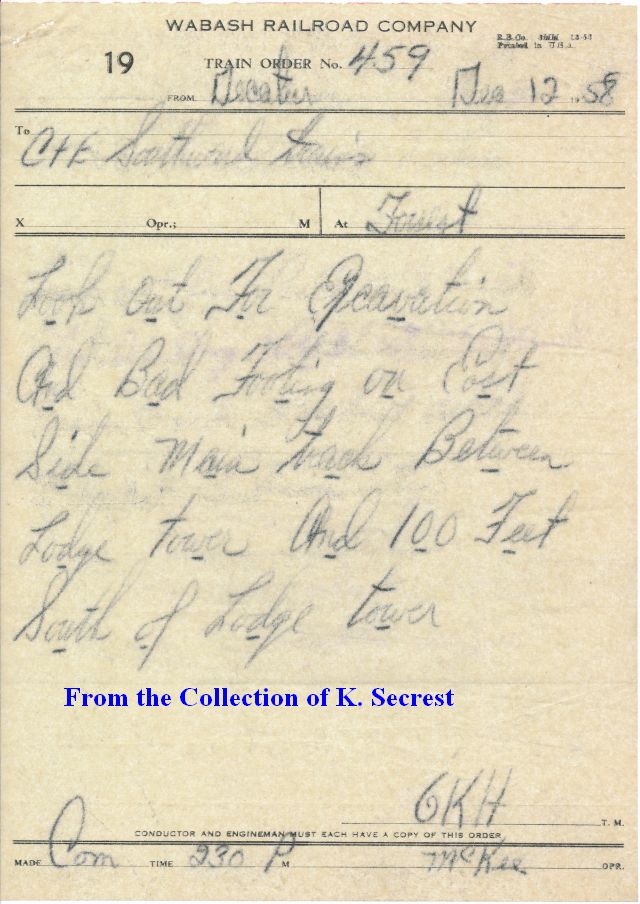 WABASH RAILROAD COMPANY
Printed in U.S.A.
19
TRAIN ORDER No. 459
FROM Decatur Dec 12 1958
To
C+E Southward Trains
X Opr.; M At Forrest
Look Out For Excavation
And Bad Footing on East
Side Main track Between
Lodge tower And 100 Feet
South of Lodge tower
From the Collection of K. Secrest
GKH T. M.
CONDUCTOR AND ENGINEMAN MUST EACH HAVE A COPY OF THIS ORDER
MADE Com TIME 230 P M McKee OPR.